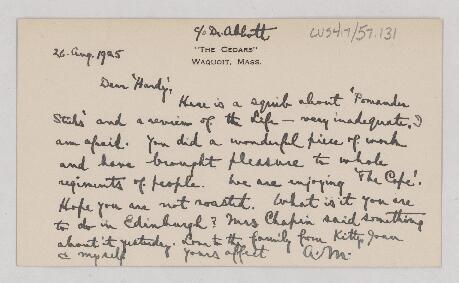 c/o Dr. Abbott
LUS4.7/57.131
"THE CEDARS"
WAQUOIT, MASS.
26. Aug. 1925
Dear 'Hardy',
Here is a squib about 'Pomander
Steps' and a review of the Life — very inadequate, I
am afraid. You did a wonderful piece of work
and have brought pleasure to whole
regiments of people. We are enjoying 'The Cape'.
Hope you are not roasted. What is it you are
to do in Edinburgh? Mrs Chapin said something
about it yesterday. Love to the family from Kitty, Joan
& myself Yours affect A.M.